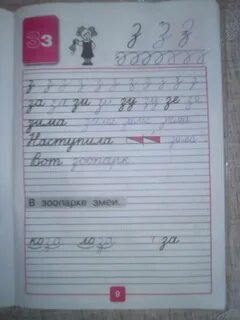 Зз
з з з
з з з з з з з з з з
за за зи зи зу зу зе зе
зима зима зима зима
Наступила зима
Вот зоопарк.
В зоопарке змеи.
коза лоза за
9